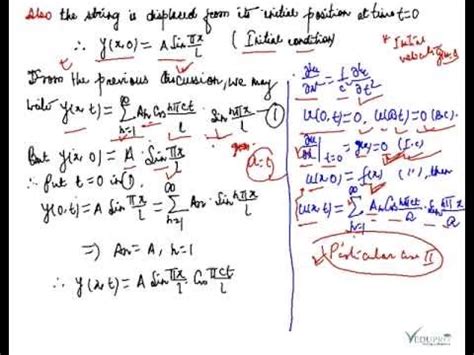 Also the string is displaced from its initial position at time t=0
∴ y(x,0) = A Sin πx/l (Initial condition)
From the previous discussion, we may
write y(x,t) = ∑_{n=1}^{∞} An Cos nπct/l . Sin nπx/l —①
But y(x,0) = A Sin πx/l
∴ Put t=0 in ①
y(0,t) = A Sin πx/l = ∑_{n=1}^{∞} An . Sin nπx/l
⇒ An = A, n=1
∴ y(x,t) = A Sin πx/l . Cos πct/l
* Initial
velocity
a=l
u(0,t)=0, u(a,t)=0 (B.C.)
∂u/∂t|_{t=0} = g(x) = 0 (I.C)
u(x,0) = f(x) ("), then
u(x,t) = ∑_{n=1}^{∞} An Cos nπct/a . Sin nπx/a
Particular case II
VEDUPRO